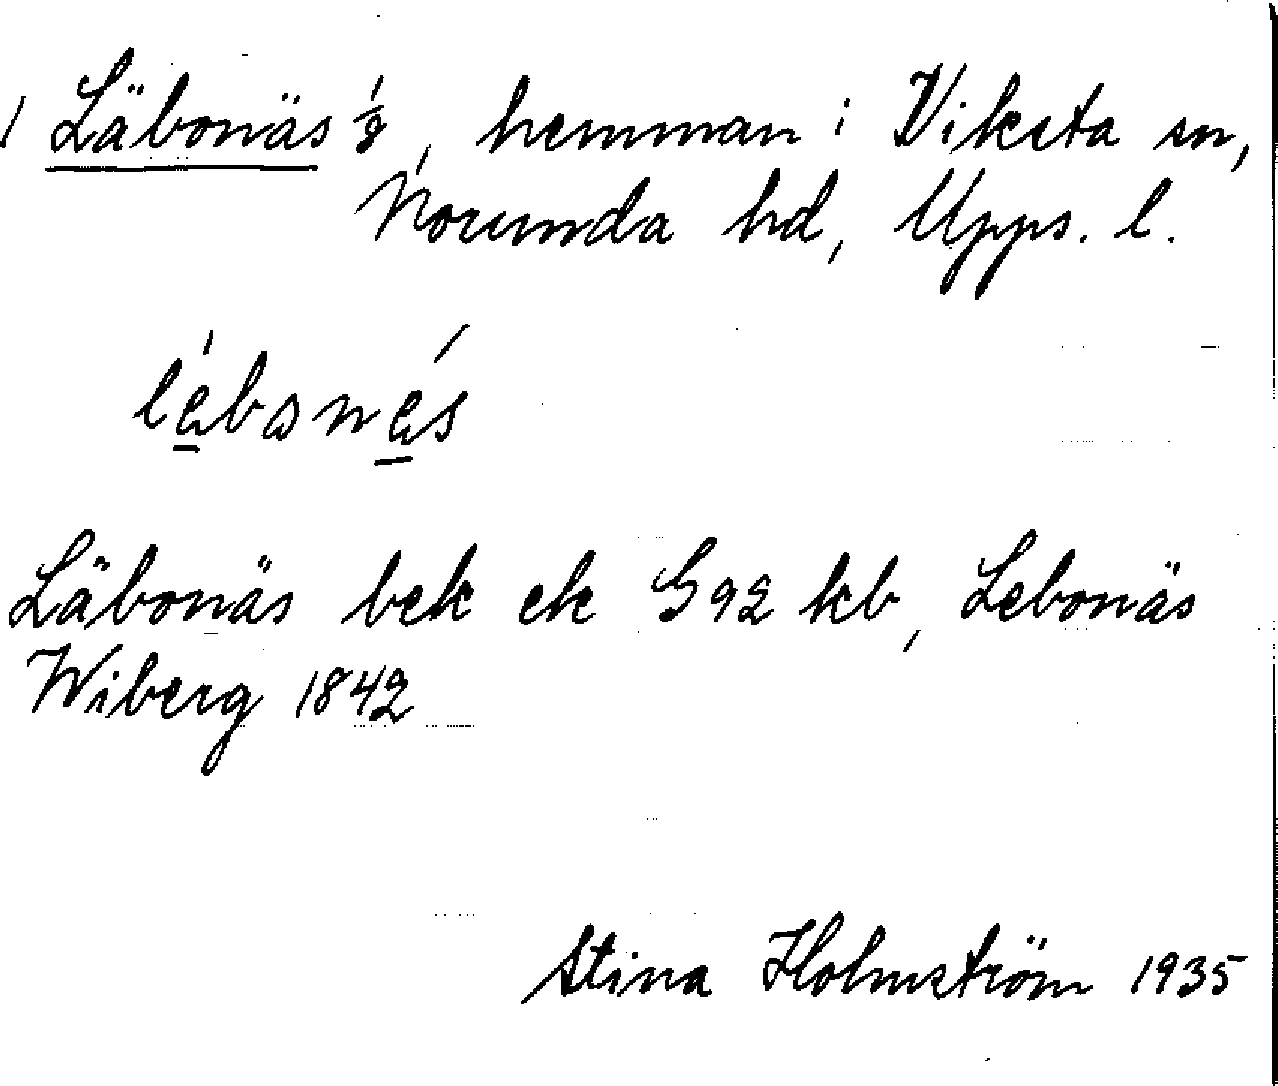 1 Läbonäs 1/8, hemman i Viksta sn,
Norunda hd, Upps. l.
Läbonäs bek ek G92 kb, Lebonäs
Wiberg 1842
Stina Holmström 1935